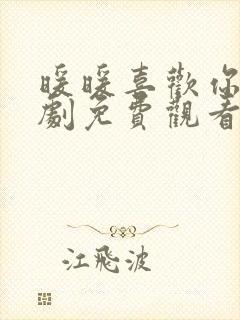 暖暖喜歡你
劇免費觀看
江飛波